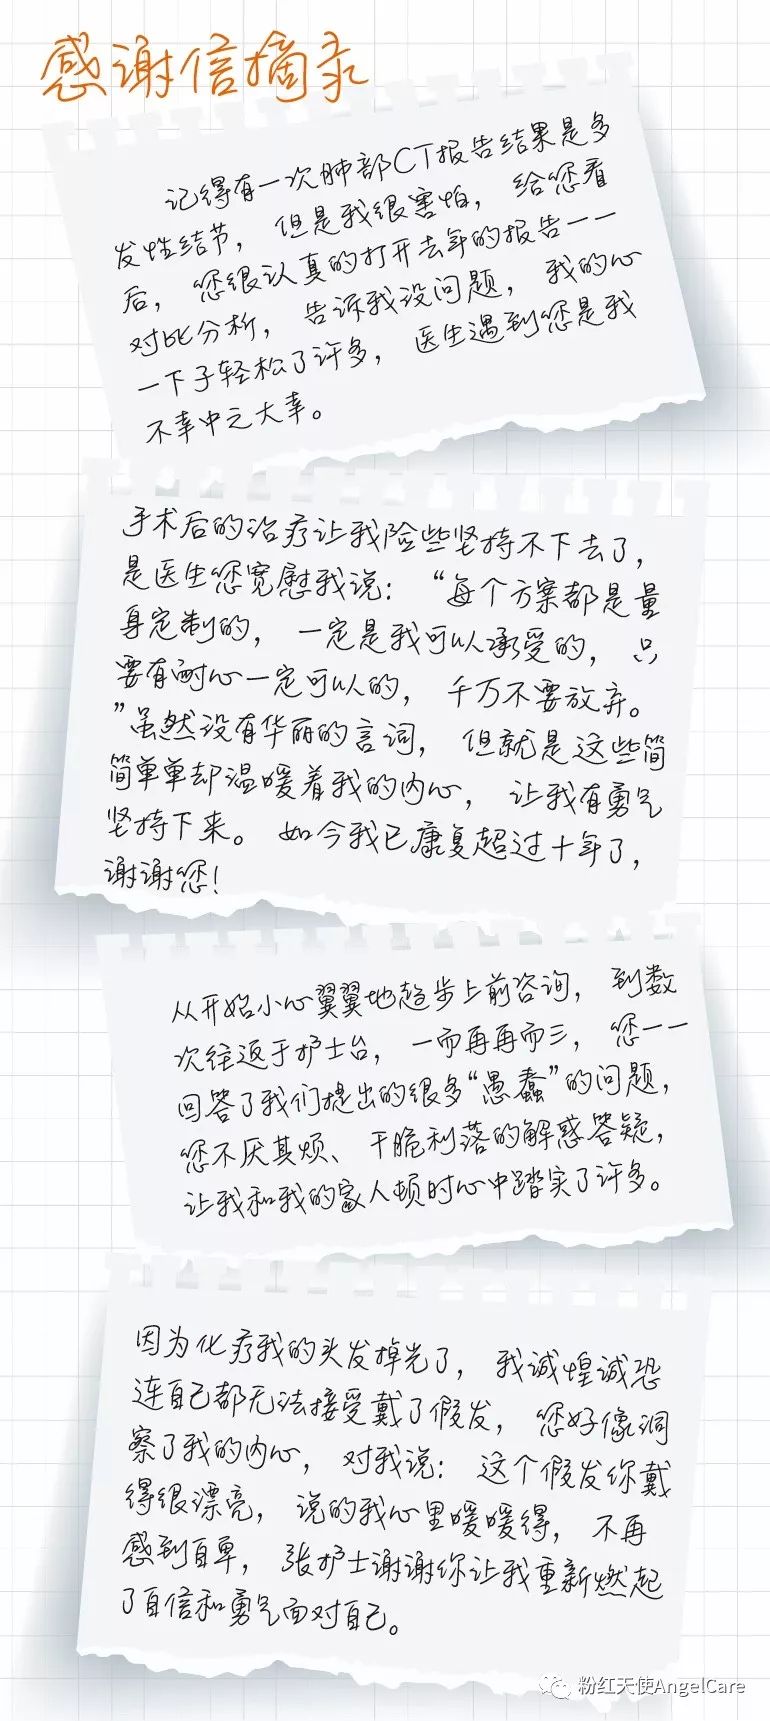 感谢信摘录
记得有一次肺部CT报告结果是多
发性结节，但是我很害怕，给您看
后，您很认真的打开去年的报告一一
对比分析，告诉我没问题，我的心
一下子轻松了许多，医生遇到您是我
不幸中之大幸。
手术后的治疗让我险些坚持不下去了，
是医生您宽慰我说：“每个方案都是量
身定制的，一定是我可以承受的，只
要有耐心一定可以的，千万不要放弃。
”虽然没有华丽的言词，但就是这些简
简单单却温暖着我的内心，让我有勇气
坚持下来。如今我已康复超过十年了，
谢谢您！
从开始小心翼翼地趋步上前咨询，到数
次往返于护士台，一而再再而三，您一一
回答了我们提出的很多“愚蠢”的问题，
您不厌其烦、干脆利落的解惑答疑，
让我和我的家人顿时心中踏实了许多。
因为化疗我的头发掉光了，我诚惶诚恐
连自己都无法接受戴了假发，您好像洞
察了我的内心，对我说：这个假发你戴
得很漂亮，说的我心里暖暖得，不再
感到自卑，张护士谢谢你让我重新燃起
了自信和勇气面对自己。
粉红天使AngelCare